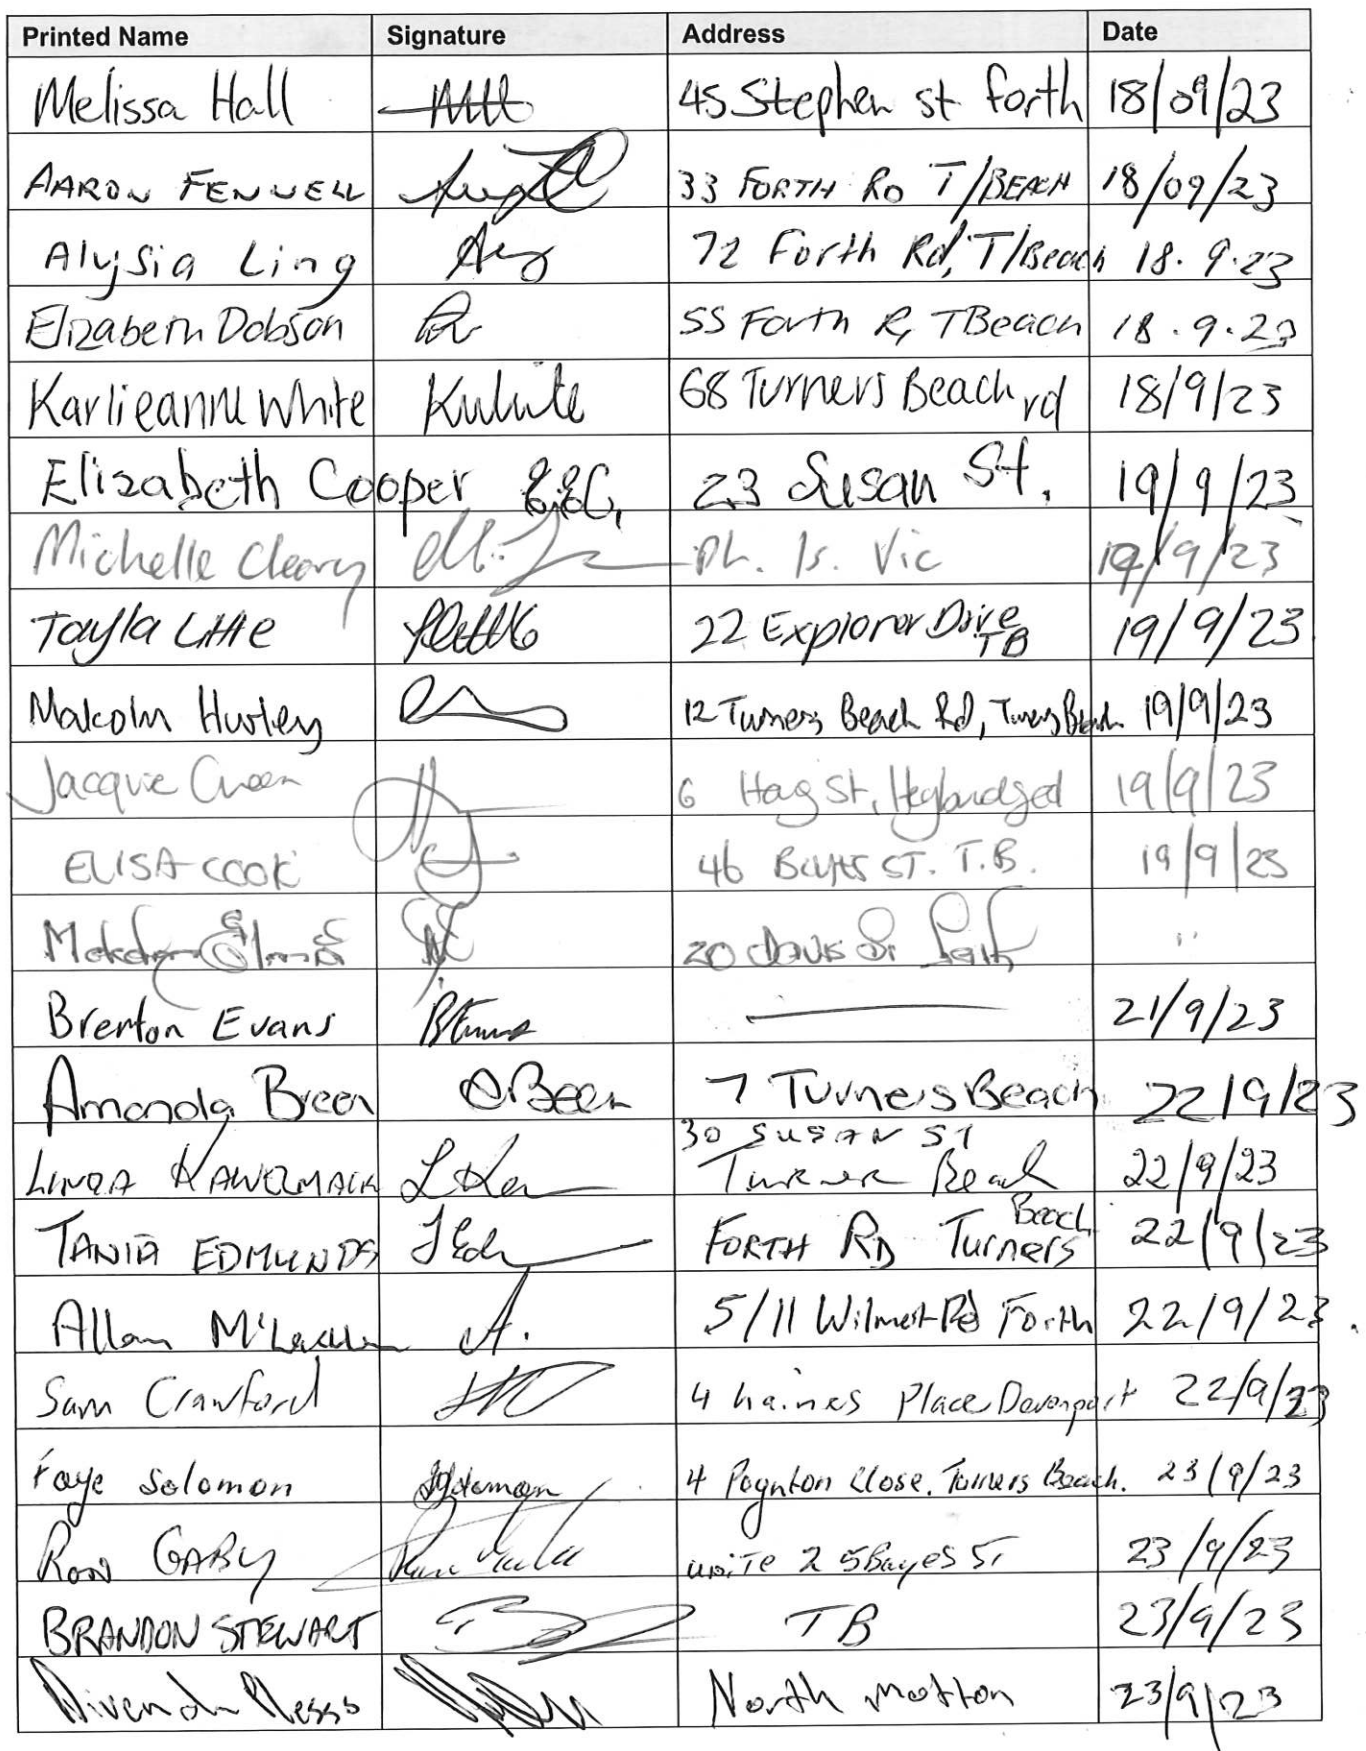 Printed Name Signature Address Date
Melissa Hall 45 Stephen st forth 18/09/23
AARON FENNELL 33 FORTH RD T/BEACH 18/09/23
Alysia Ling 72 Forth Rd, T/Beach 18.9.23
Elizabeth Dobson 55 Forth R, TBeach 18.9.23
Karlieanne White KWhite 68 Turners Beach rd 18/9/23
Elizabeth Cooper E.E.C. 23 Susan St. 19/9/23
Michelle Cleary Ph. Is. Vic 19/9/23
Tayla Little 22 Explorer Drive TB 19/9/23
Malcolm Hurley 12 Turners Beach Rd, Turners Beach 19/9/23
Jacquie 6 St, 19/9/23
ELISA COOK 46 BAYES ST. T.B. 19/9/23
20 St "
Brenton Evans BEvans 21/9/23
Amanda Breen ABreen 7 Turners Beach 22/9/23
30 SUSAN ST
LINDA Turner Beach 22/9/23
TANIA EDMUNDS FORTH RD Turners Beach 22/9/23
Allan A. 5/11 Wilmot Rd Forth 22/9/23
Sam Crawford 4 haines Place Devonport 22/9/23
Faye Solomon 4 Poynton Close. Turners Beach. 23/9/23
RON GABY unite 2 5 Bayes St 23/9/23
BRANDON STEWART TB 23/9/23
North Motton 23/9/23